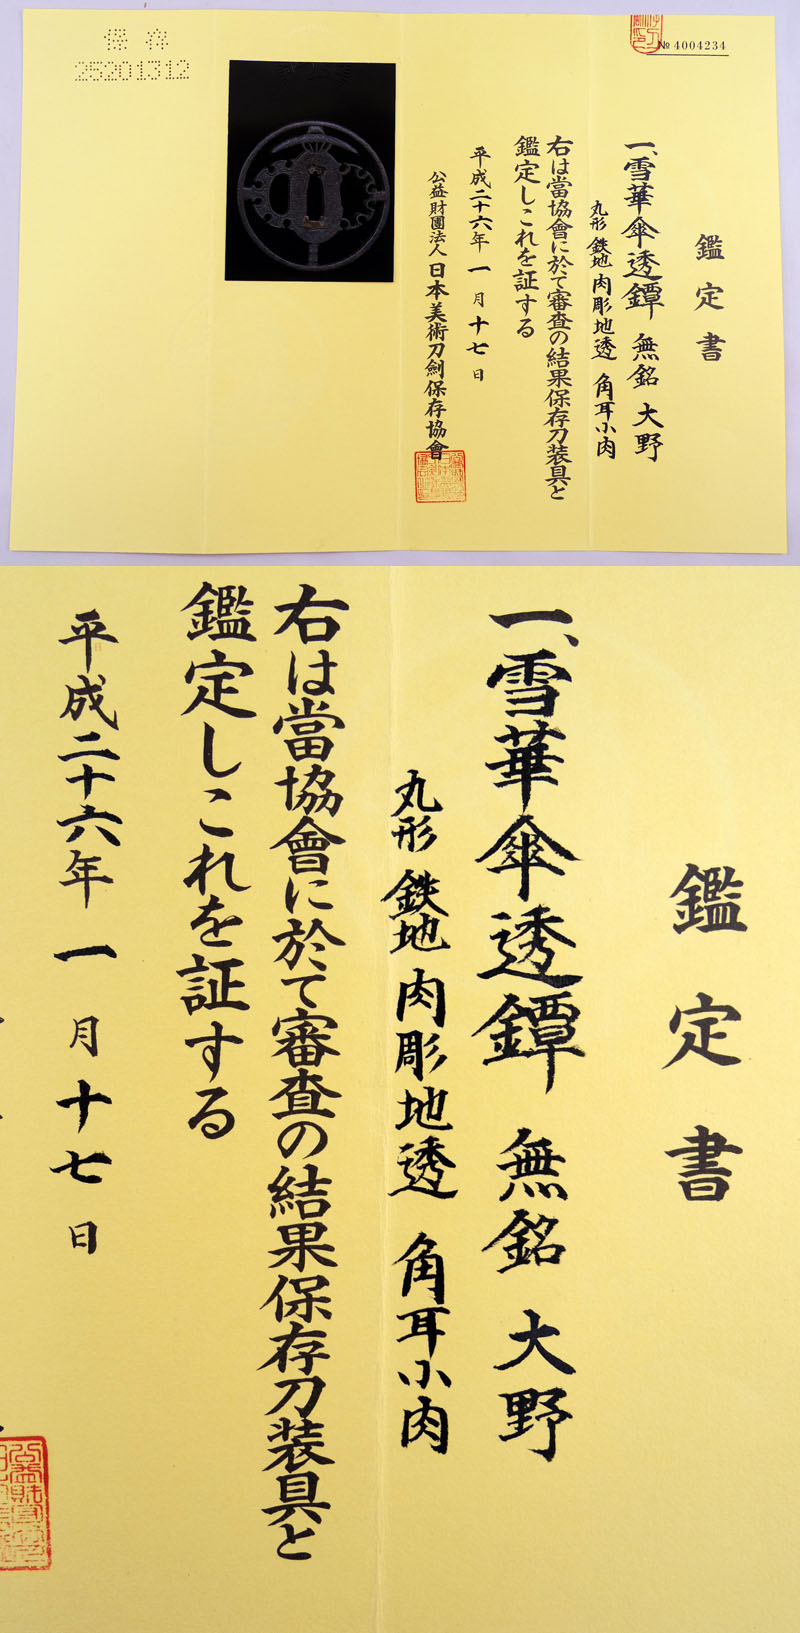 № 4004234
鑑定書
一、雪華傘透鐔 無銘 大野
丸形 鉄地 肉彫地透 角耳小肉
右は當協會に於て審査の結果保存刀装具と
鑑定しこれを証する
平成二十六年一月十七日
公益財團法人日本美術刀劍保存協會
保存
25201312
鑑定書
一、雪華傘透鐔 無銘 大野
丸形 鉄地 肉彫地透 角耳小肉
右は當協會に於て審査の結果保存刀装具と
鑑定しこれを証する
平成二十六年一月十七日